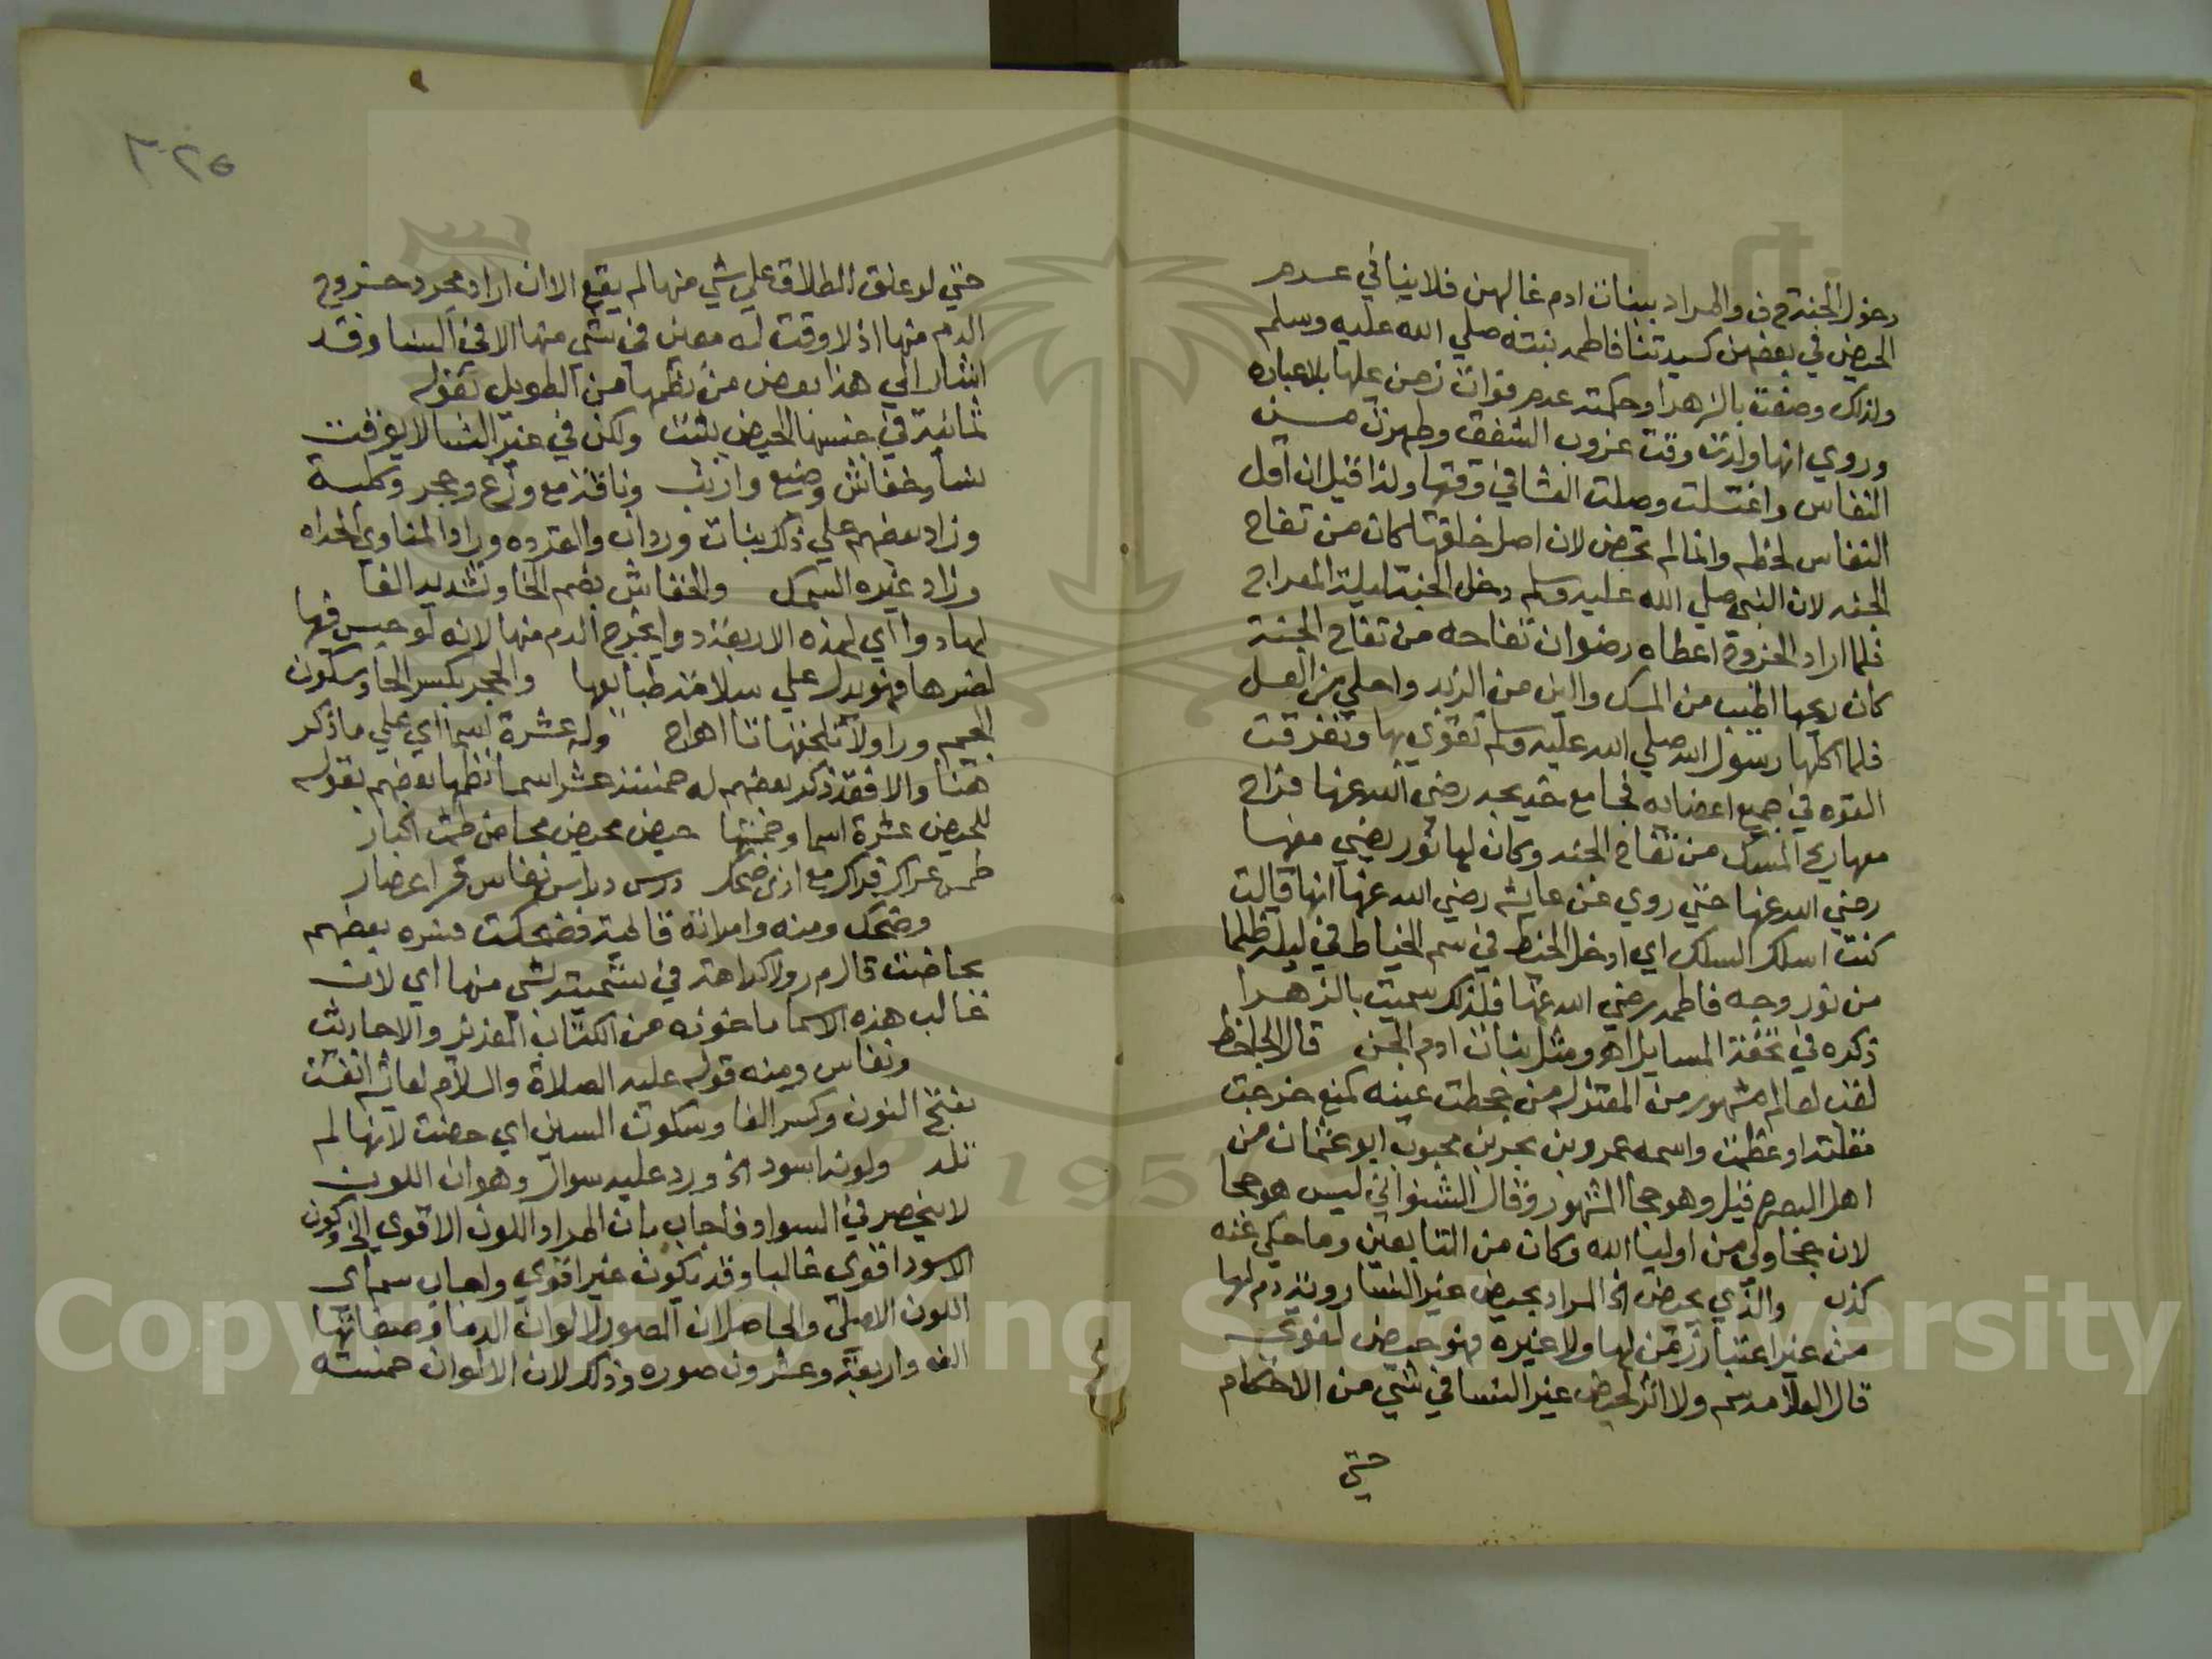 دخول الجنة ح ف والمراد ببنات ادم غالبهن فلا ينافي عدم
الحيض في بعضهن كسيدتنا فاطمه بنته صلي الله عليه وسلم
ولذلك وصفت بالزهرا وحكمته عدم فوات زمن عليها بلا عباده
وروي انها ولدت وقت غروب الشفق وطهرت من
النفاس واغتسلت وصلت العشا في وقتها ولذا قيل ان اقل
النفاس لحظه وانما لم تحض لان اصل خلقتها كان من تفاح
الجنه لان النبي صلي الله عليه وسلم دخل الجنة ليلة المعراج
فلما اراد الخروج اعطاه رضوان تفاحه من تفاح الجنة
كان ريحها اطيب من المسك والين من الزبد واحلي من العسل
فلما اكلها رسول الله صلي الله عليه وسلم تقوي بها وتفرقت
القوه في جميع اعضايه فجامع خديجه رضي الله عنها فراح
معها ريح المسك من تفاح الجنه وكان لها نور يضي منها
رضي الله عنها حتي روي عن عايشه رضي الله عنها انها قالت
كنت اسلك السلك اي ادخل الخيط في سم الخياط في ليلة ظلما
من نور وجه فاطمه رضي الله عنها فلذلك سميت بالزهرا
ذكره في تحفة المسايل اهـ ومثل بنات ادم الجن قال الجاحظ
لقب لعالم مشهور من المعتزله من جحظت عينه كمنع خرجت
مقلته او عظمت واسمه عمرو بن بحر بن محبوب ابو عثمان من
اهل البصره قيل وهو جحا المشهور وقال الشنواني ليس هو جحا
لان جحا ولي من اوليا الله وكان من التابعين وما حكي عنه
كذب والذي يحيض الخ المراد بحيض غير النسا روية دم لها
من غير اعتبار زمن لها ولا غيره فهو حيض لغوي
قال العلامه سم ولا اثر لحيض غير النسا في شي من الاحكام
حتي
٣٢٥
حتي لو علق الطلاق علي شي منها لم يقع الا ان اراد مجرد خروج
الدم منها اذ لا وقت له معين في شي منها الا في النسا وقد
اشار الي هذا بعض من نظمها من الطويل بقوله
ثمانية في جنسها الحيض يثبت ولكن في غير النسا لا يوقت
نسا وخفاش وضبع وارنب وناقة مع وزغ وحجر وكلبة
وزاد بعضهم علي ذلك بنات وردان والقرده وزاد المناوي الحداه
وزاد غيره السمك والخفاش بضم الخا وتشديد الفا
لها دوا اي لهذه الاربعة دوا يخرج الدم منها لانه لو حبس فيها
لضرها فهو يدل علي سلامة طبايعها والحجر بكسر الحا وسكون
الجيم ورا ولا تلحقها تا اهـ اج وله عشرة اسما اي علي ما ذكر
هنا والا فقد ذكر بعضهم له خمسة عشر اسما نظمها بعضهم بقوله
للحيض عشرة اسما وخمستها حيض محيض محاض طمث اكبار
طمس عراك فراك مع اذى ضحك درس دراس نفاس قرا اعصار
وضحك ومنه وامراته قايمة فضحكت فسره بعضهم
بحاضت قال م ر ولا كراهة في تسمية شي منها اي لان
غالب هذه الاسما ماخوذه من الكتاب العزيز والاحاديث
ونفاس ومنه قوله عليه الصلاة والسلام لعايشه انفست
بفتح النون وكسر الفا وسكون السين اي حضت لانها لم
تلد ولونه اسود الخ ورد عليه سوال وهو ان اللون
لا ينحصر في السواد فاجاب بان المراد اللون الاقوي الخ وكون
الاسود اقوي غالبا وقد يكون غير اقوي واجاب سم اي
اللون الاصلي والحاصل ان الصور لالوان الدما وصفاتها
الف واربعة وعشرون صوره وذلك لان الالوان خمسة
Copyright © King Saud University
1957